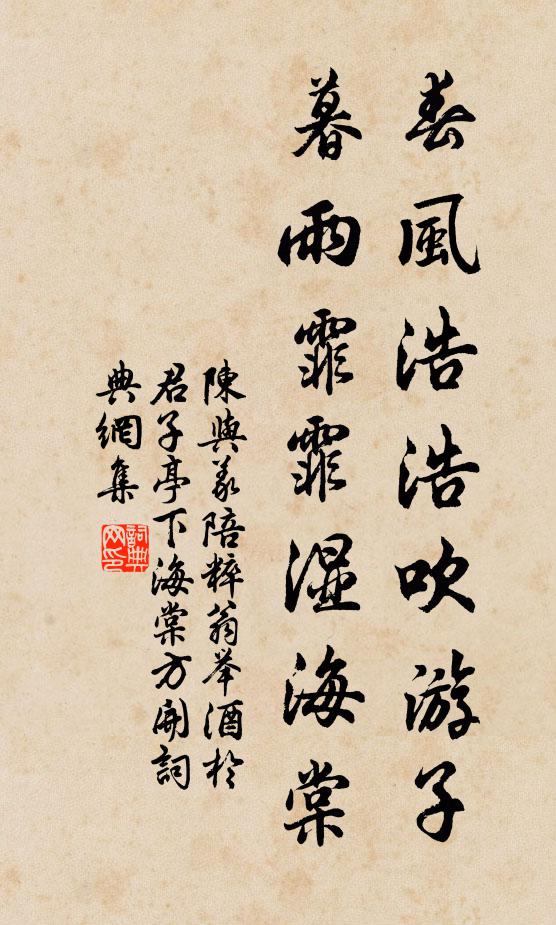 春風浩浩吹游子
暮雨霏霏湿海棠
陳與義陪粹翁举酒於
君子亭下海棠方開詞
典網集
詞典网印